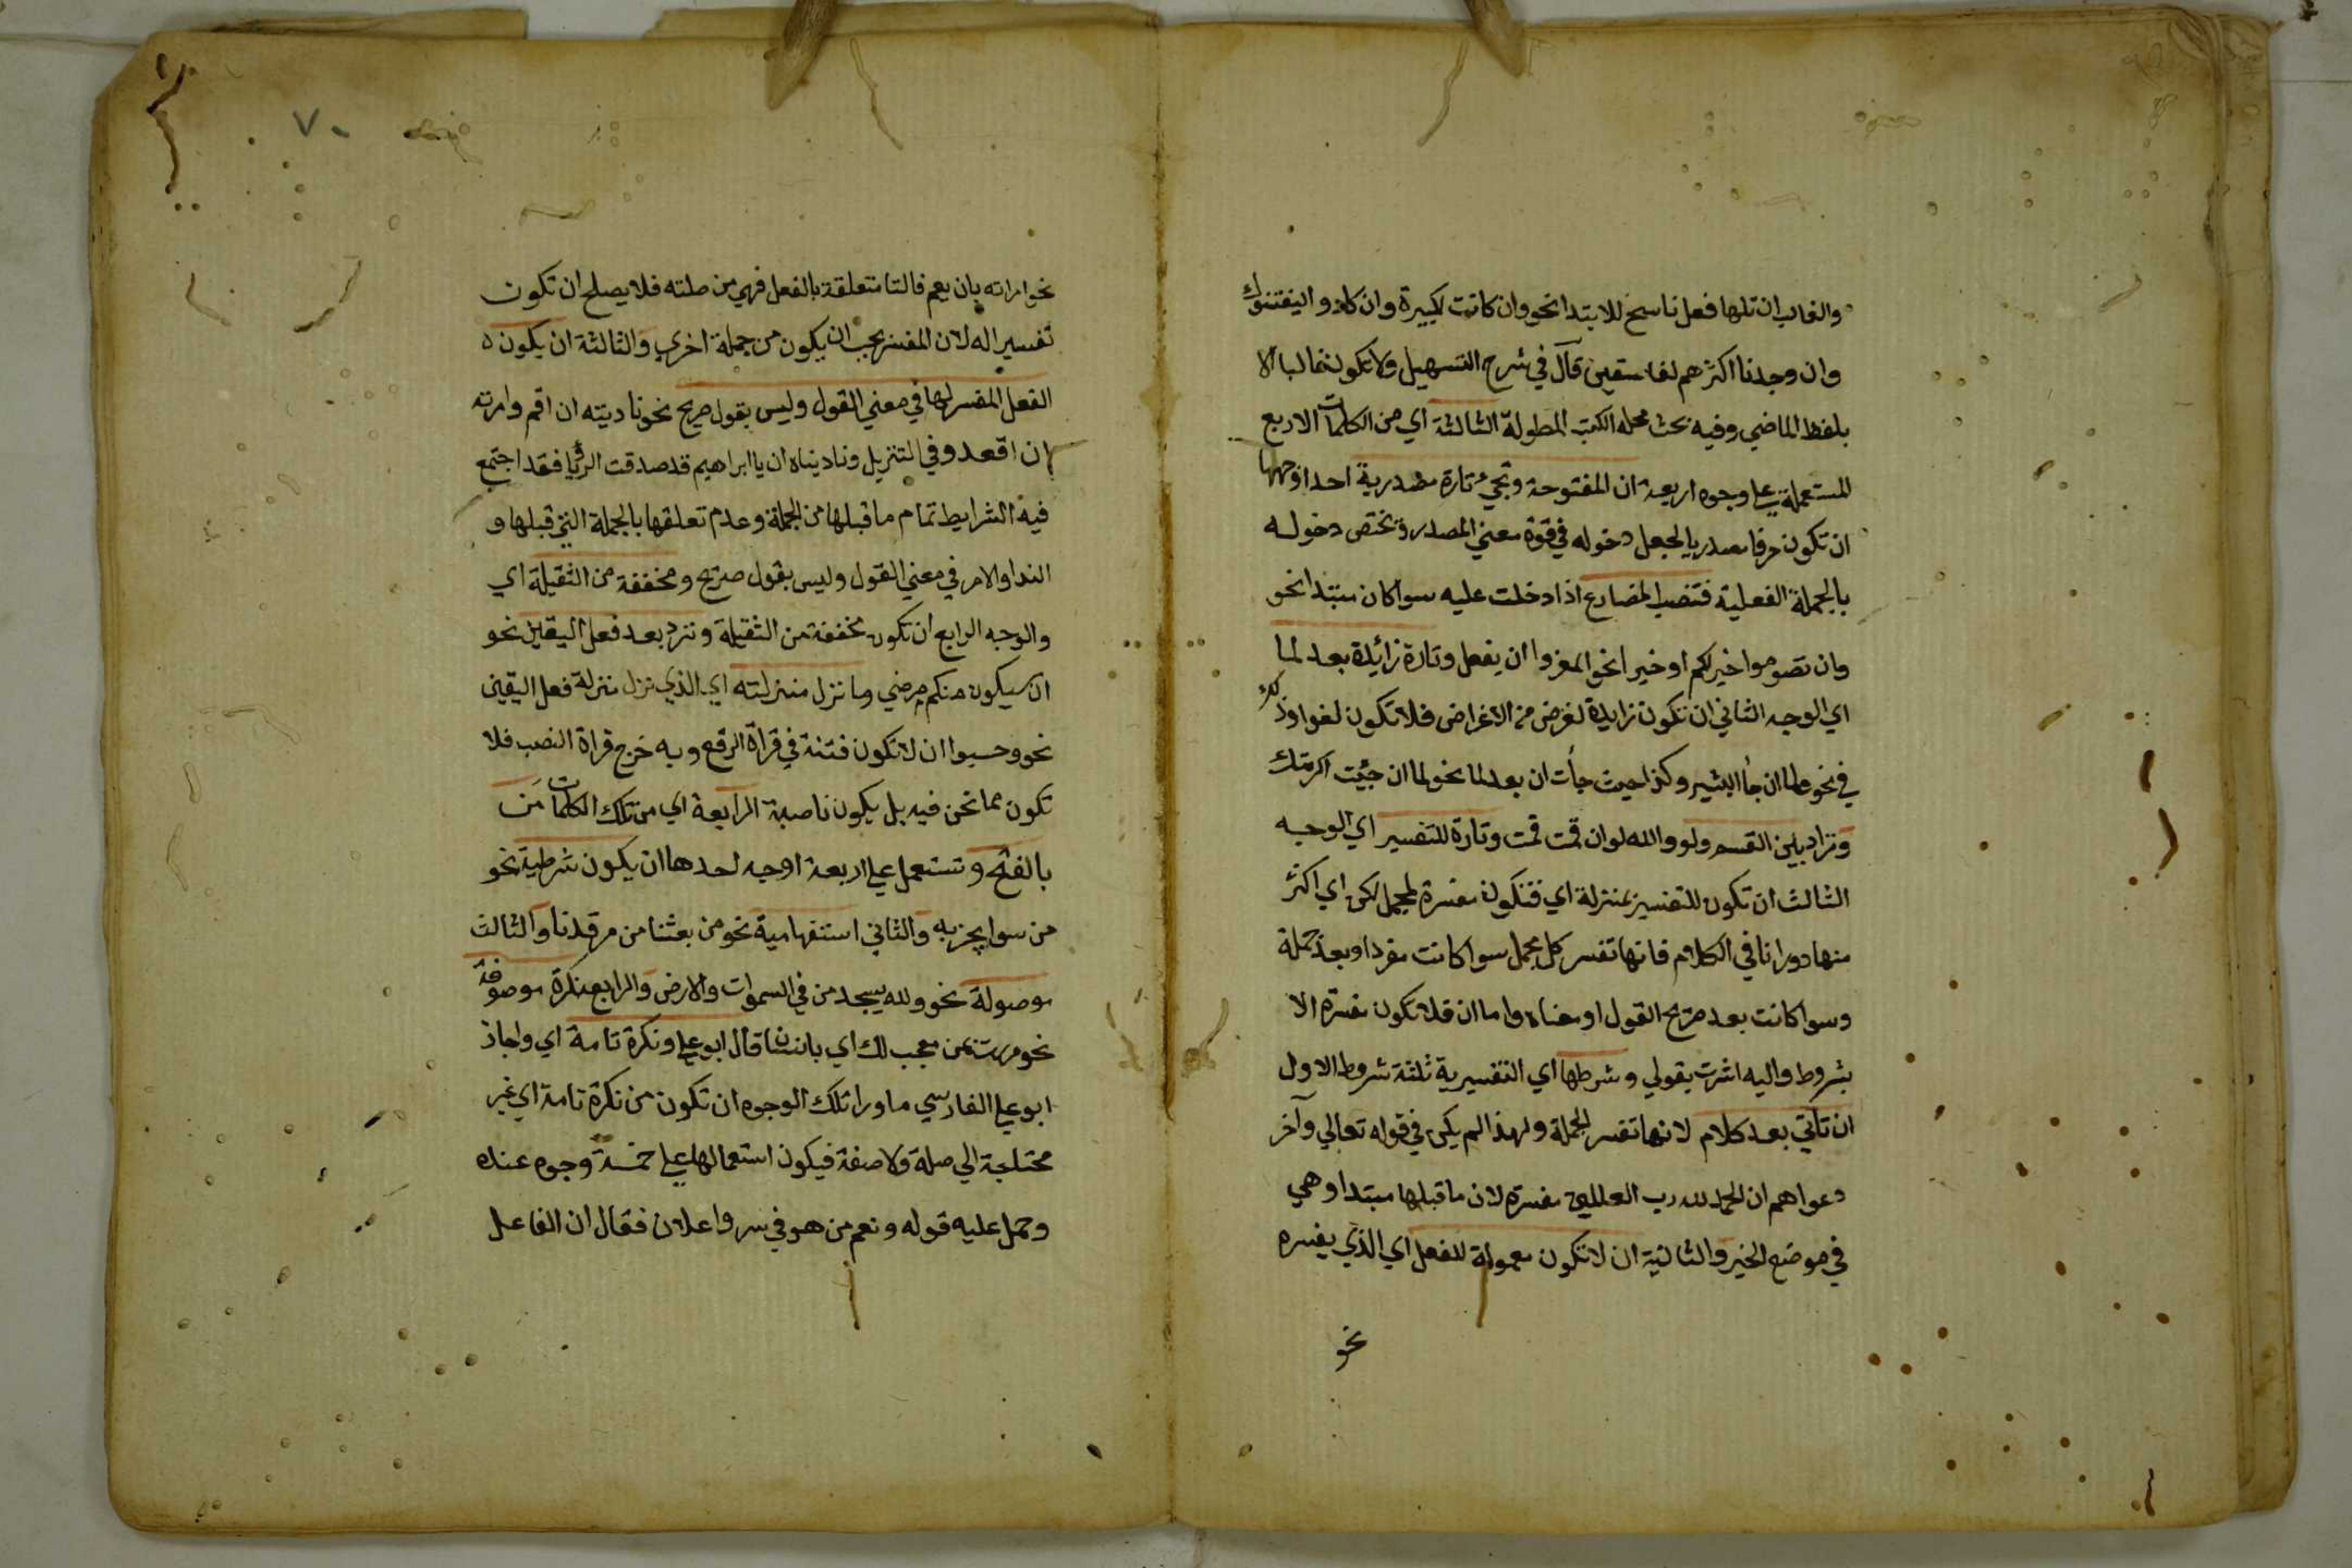 والغالب ان تلها فعل ناسخ للابتدا نحو وان كانت لكبيرة وان كادوا ليفتنونك
وان وجدنا اكثرهم لفاسقين قال في شرح التسهيل ولا تكون غالبا الا
بلفظ الماضي وفيه بحث محله الكتب المطولة الثالثة اي من الكلمات الاربع
المستعملة علي وجوه اربعة ان المفتوحة وتجيء تارة مصدرية احد اوجهها
ان تكون حرفا مصدريا لجعل دخوله في قوة معني المصدر وتختص دخوله
بالجملة الفعلية فتنصب المضارع اذا دخلت عليه سوا كان مبتدا نحو
وان تصوموا خير لكم او خبرا نحو المغزوا ان يفعل وتارة زائدة بعد لما
اي الوجه الثاني ان تكون زايدة لغرض من الاغراض فلا تكون لغوا وذلك
في نحو فلما ان جأ البشير وكذا حيث جأت ان بعد لما نحو لما ان جئت اكرمتك
وتزاد بين القسم ولو والله لو ان قمت قمت وتارة للتفسير اي الوجه
الثالث ان تكون للتفسير بمنزلة اي فتكون مفسرة لمجمل لكن اي اكثر
منها دورانا في الكلام فانها تفسر كل مجمل سوا كانت مفردا وبعد جملة
وسوا كانت بعد صريح القول او معناه واما ان فلا تكون مفسرة الا
بشروط واليه اشرت بقولي وشرطها اي التفسيرية ثلثة شروط الاول
ان تاتي بعد كلام لانها تفسر الجملة ولهذا لم يكن في قوله تعالي وآخر
دعواهم ان الحمد لله رب العلمين مفسرة لان ما قبلها مبتدا وهي
في موضع الخبر والثانية ان لا تكون معمولة للفعل اي الذي يفسره
نحو
٧٠
نحو امرته بان يعم فالتا متعلقة بالفعل فهي من صلته فلا يصلح ان تكون
تفسيرا له لان المفسر يجب ان يكون من جملة اخري والثالثة ان يكون
الفعل المفسر لها في معني القول وليس بقول صريح نحو ناديته ان اقم وامرته
ان اقعد وفي التنزيل وناديناه ان يا ابراهيم قد صدقت الرؤيا فقد اجتمع
فيه الشرايط تمام ما قبلها من الجملة وعدم تعلقها بالجملة التي قبلها و
الندا والامر في معني القول وليس بقول صريح ومخففة من الثقيلة اي
والوجه الرابع ان تكون مخففة من الثقيلة وترد بعد فعل اليقين نحو
ان سيكون منكم مرضي وما نزل منزلته اي الذي نزل منزلة فعل اليقين
نحو وحسبوا ان لا تكون فتنة في قراة الرفع وبه خرج قراة النصب فلا
تكون مما نحن فيه بل يكون ناصبة الرابعة اي من تلك الكلمات من
بالفتح وتستعمل علي اربعة اوجه احدها ان يكون شرطية نحو
من سوا يجز به والثاني استفهامية نحو من بعثنا من مرقدنا والثالث
موصولة نحو ولله يسجد من في السموات والارض والرابع نكرة موصوفة
نحو مررت بمن معجب لك اي بانسان قال ابو علي ونكرة تامة اي واجاز
ابو علي الفارسي ما ورا تلك الوجوه ان تكون من نكرة تامة اي غير
محتاجة الي صلة ولا صفة فيكون استعمالها علي خمسة وجوه عنده
وحمل عليه قوله ونعم من هو في سر واعلان فقال ان الفاعل